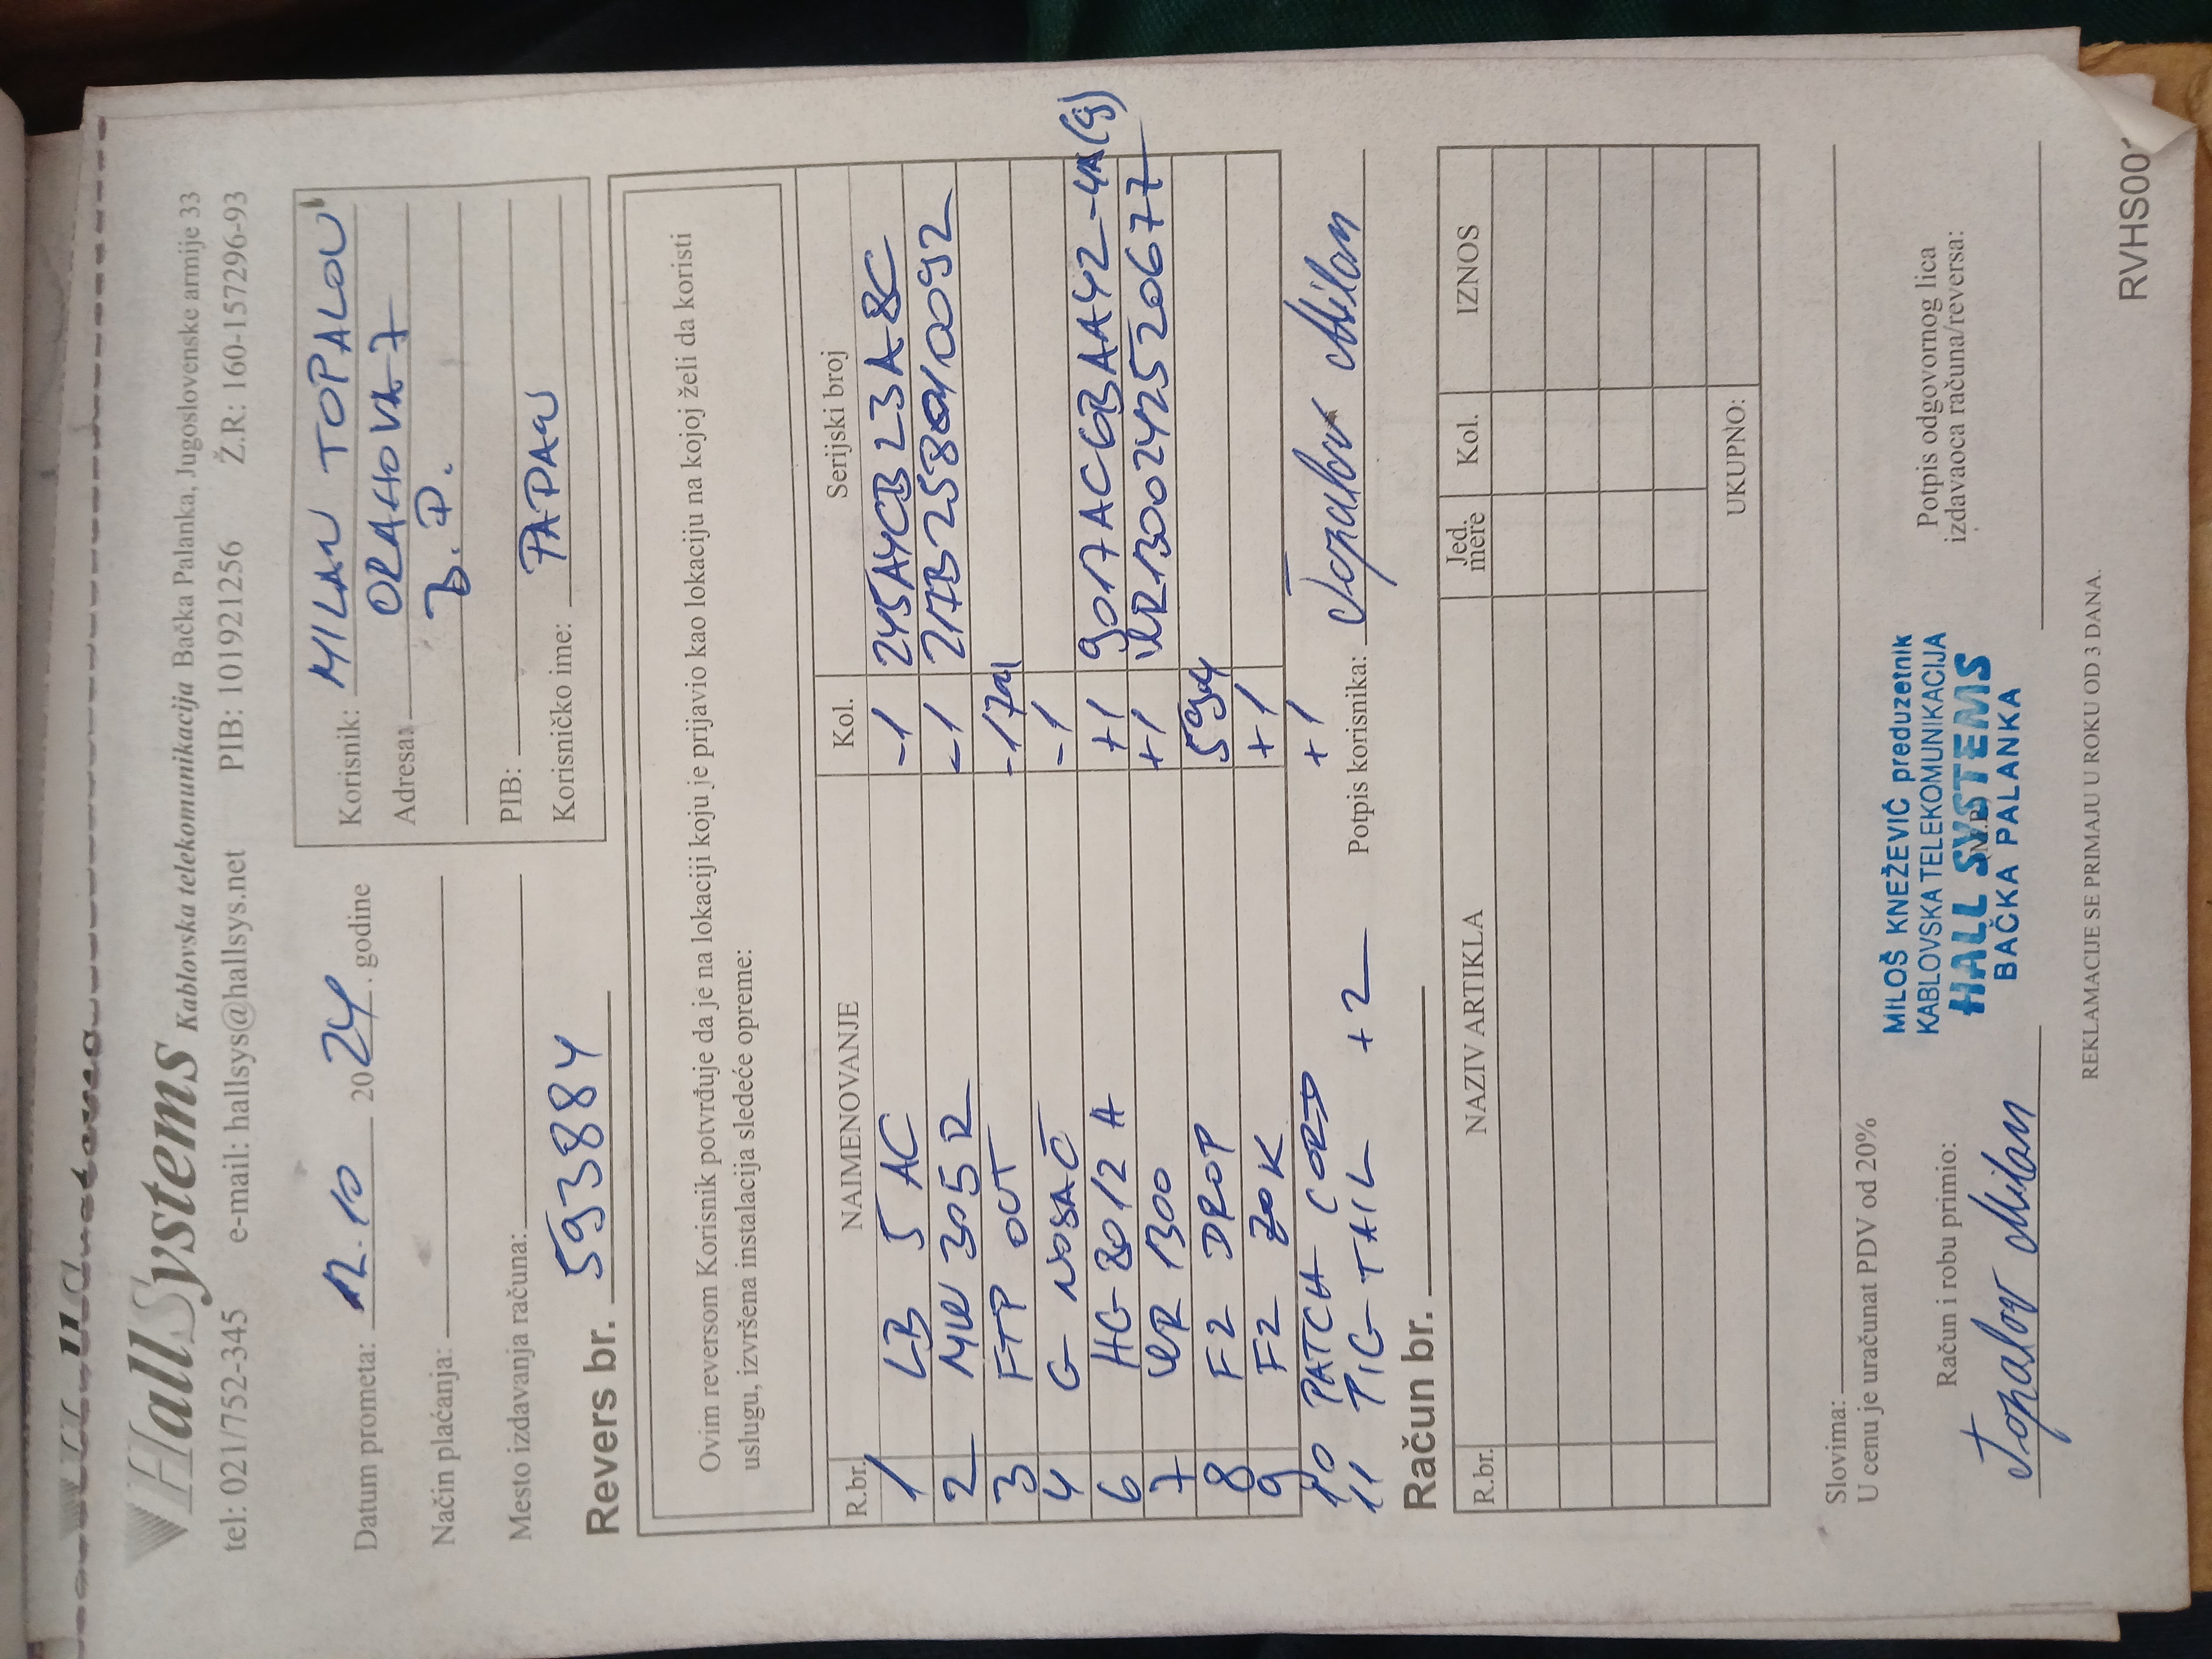 HallSystems Kablovska telekomunikacija Bačka Palanka, Jugoslovenske armije 33
tel: 021/752-345 e-mail: hallsys@hallsys.net PIB: 101921256 Ž.R: 160-157296-93
Datum prometa: 12.10 2024. godine
Način plaćanja:
Mesto izdavanja računa:
Korisnik: MILAN TOPALOV
Adresa: ORAHOVA 7
B.P.
PIB:
Korisničko ime: PAPAN
Revers br. 593884
Ovim reversom Korisnik potvrđuje da je na lokaciji koju je prijavio kao lokaciju na kojoj želi da koristi
uslugu, izvršena instalacija sledeće opreme:
R.br. NAIMENOVANJE Kol. Serijski broj
1 LB 5 AC -1 245A4CB23A8C
2 MW 305R -1 217B2580410092
3 FTP OUT -17m
4 G NOSAČ -1
6 HG 8012 H +1 9017AC6BAA42-4A(G)
7 WR 1300 +1 WR1300242520677
8 F2 DROP 59m
9 F2 ZOK +1
10 PATCH CORD +1
11 PIG TAIL +2
Potpis korisnika: Topalov Milan
Račun br.
R.br. NAZIV ARTIKLA Jed. mere Kol. IZNOS
UKUPNO:
Slovima:
U cenu je uračunat PDV od 20%
Račun i robu primio:
Topalov Milan
MILOŠ KNEŽEVIĆ preduzetnik
KABLOVSKA TELEKOMUNIKACIJA
HALL SYSTEMS
(M.P.)
BAČKA PALANKA
Potpis odgovornog lica
izdavaoca računa/reversa:
REKLAMACIJE SE PRIMAJU U ROKU OD 3 DANA.
RVHS001